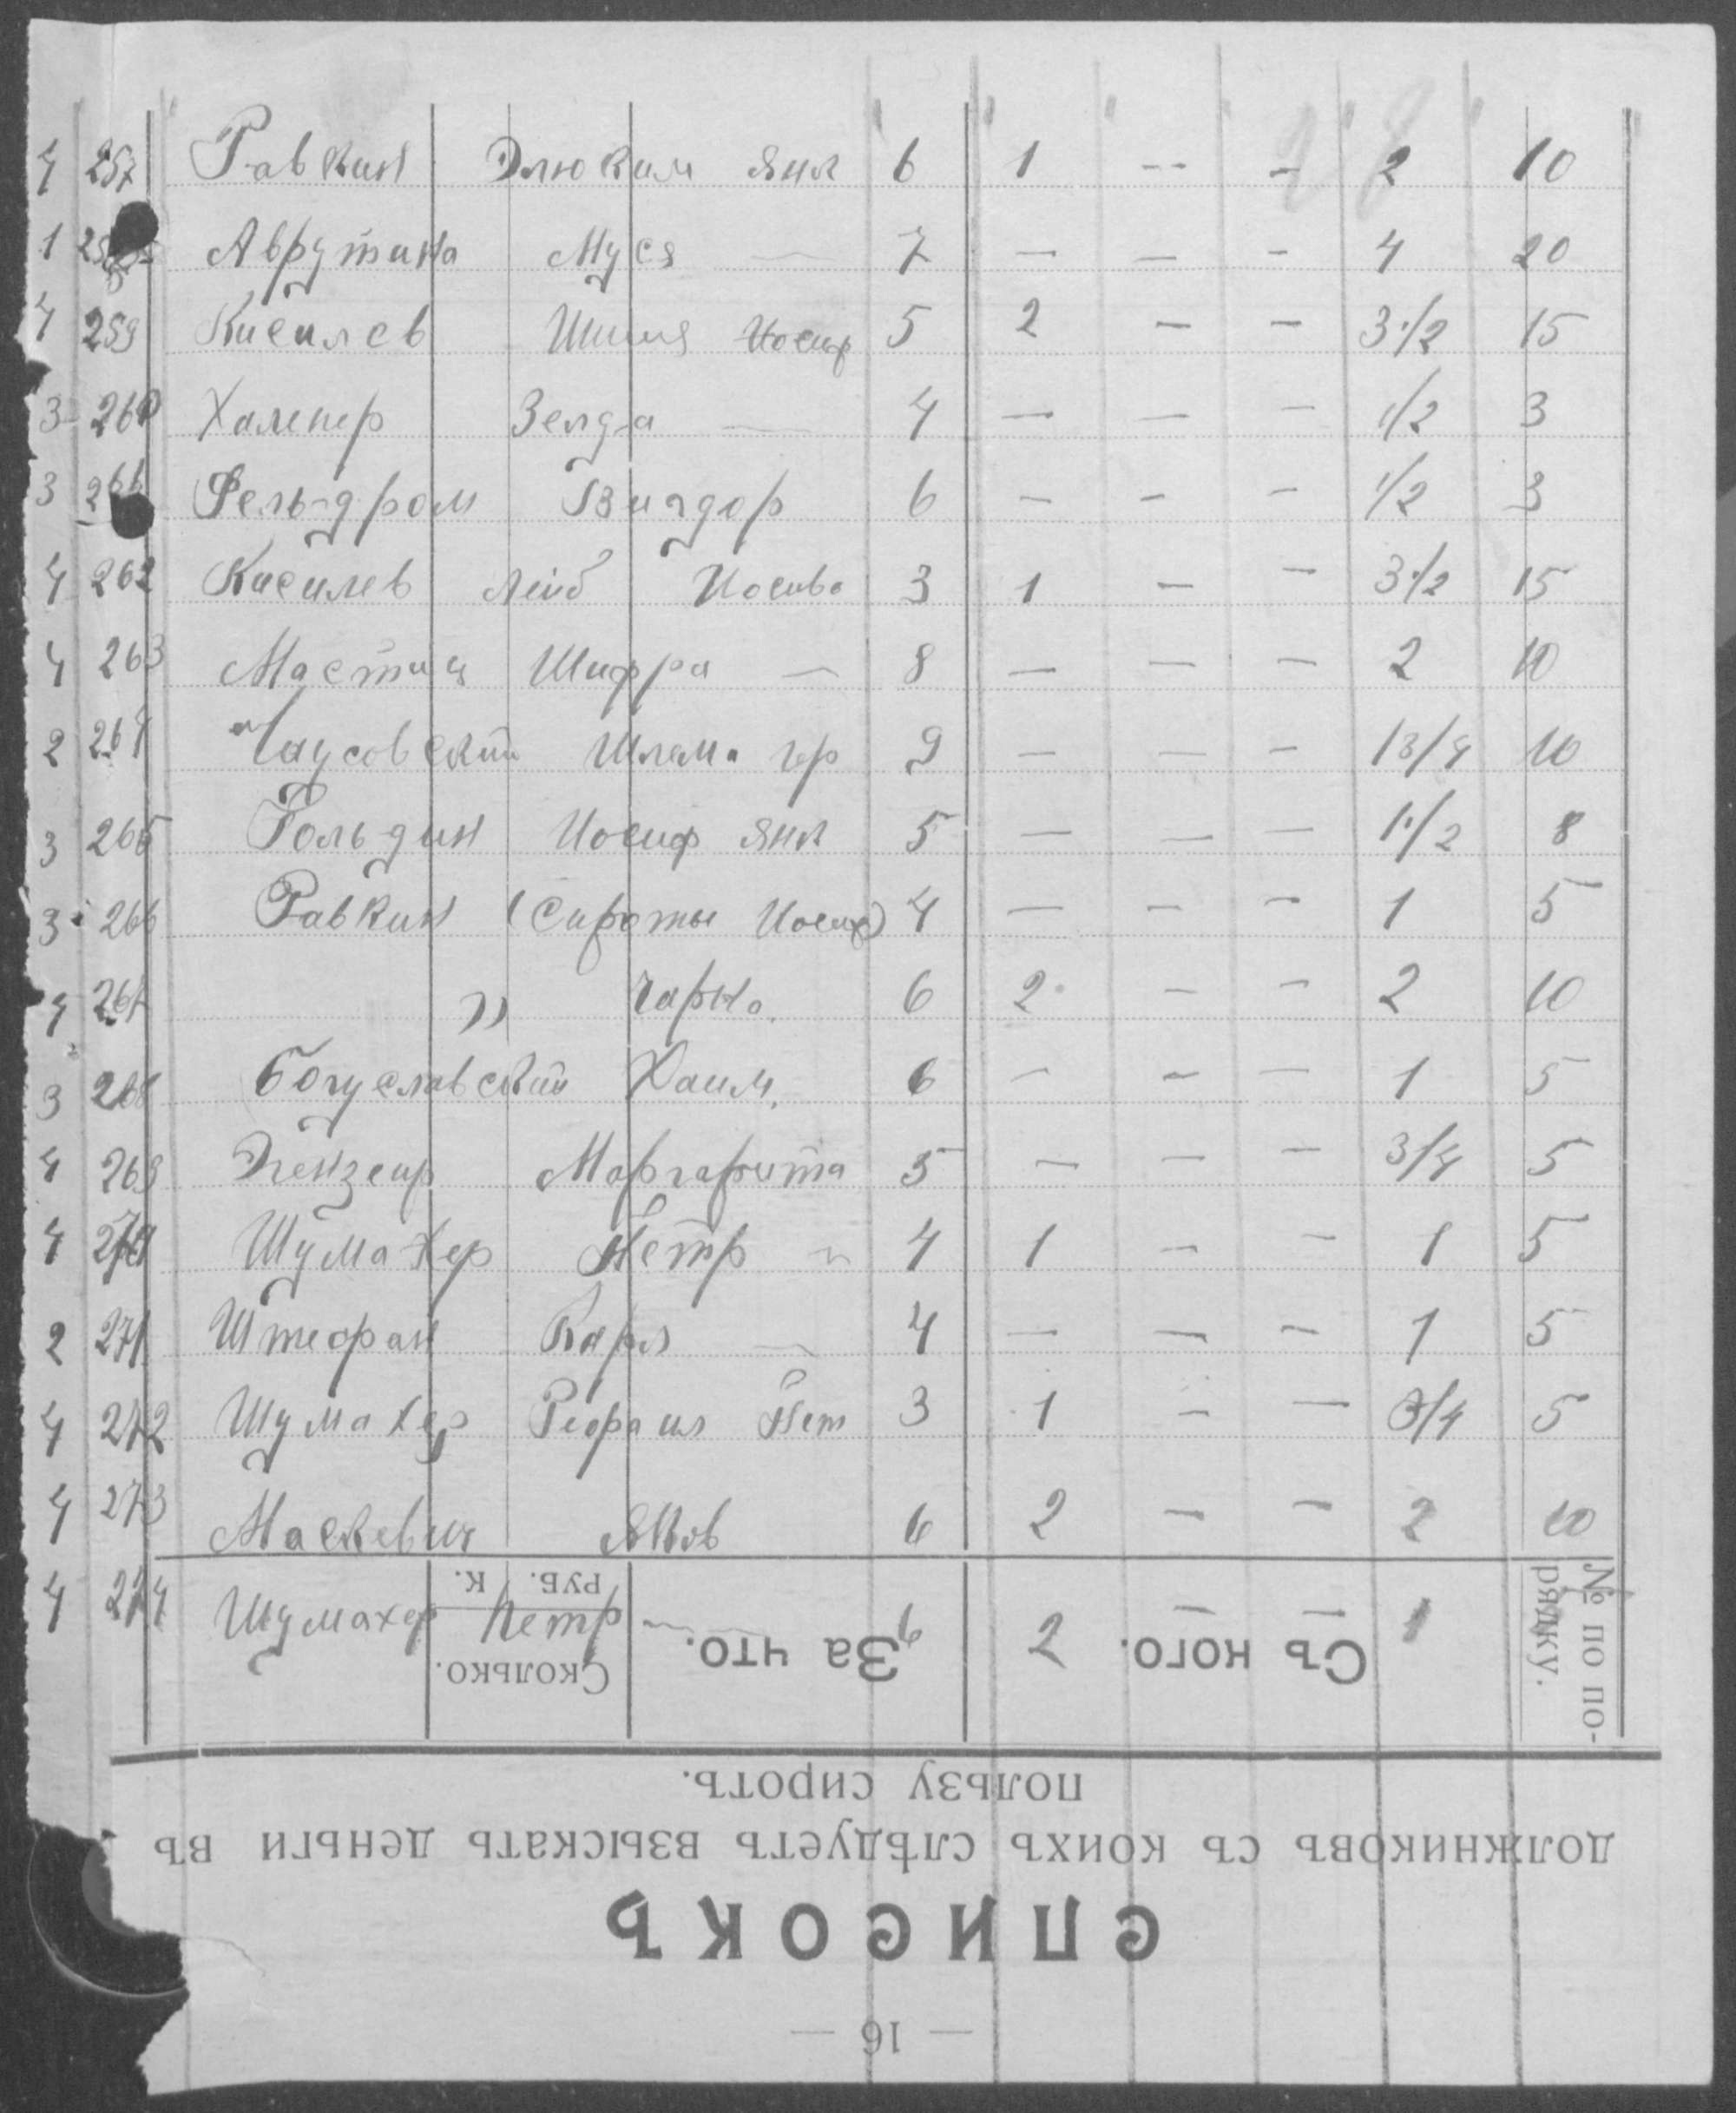 4 257 Равкин Элюким Янк 6 1 - - 2 10
1 Аврутина Муся — 7 - - - 4 20
4 259 Кисилев Шиия Иосиф 5 2 - - 3 1/2 15
3 260 Халепер Зелда — 4 - - - 1/2 3
3 Фельдром Вигдор 6 - - - 1/2 3
4 262 Кисилев Лейб Иосиво 3 1 - - 3 1/2 15
4 263 Шифра — 8 - - - 2 10
2 264 Чаусовский Шлема гр 9 - - - 1 3/4 10
3 265 Гольдин Иосиф Янк 5 - - - 1 1/2 8
3 266 Равкин (Сироты Иосиф) 4 - - - 1 5
4 267 " Чарна. 6 2 - - 2 10
3 268 Богуславский Хаим. 6 - - - 1 5
4 269 Маргарита 5 - - - 3/4 5
4 270 Шумахер Петр — 4 1 - - 1 5
2 271 Штефан Карл — 4 - - - 1 5
4 272 Шумахер Рефаил Пет 3 1 - - 3/4 5
4 273 Маскевич Яков 6 2 - - 2 10
4 274 Шумахер Петр — 6 2 - - 1
— 16 —
СПИСОКЪ
должниковъ съ коихъ слѣдуетъ взыскать деньги въ
пользу сиротъ.
№ по по-
рядку.
Съ кого.
За что.
Сколько.
РУБ. К.